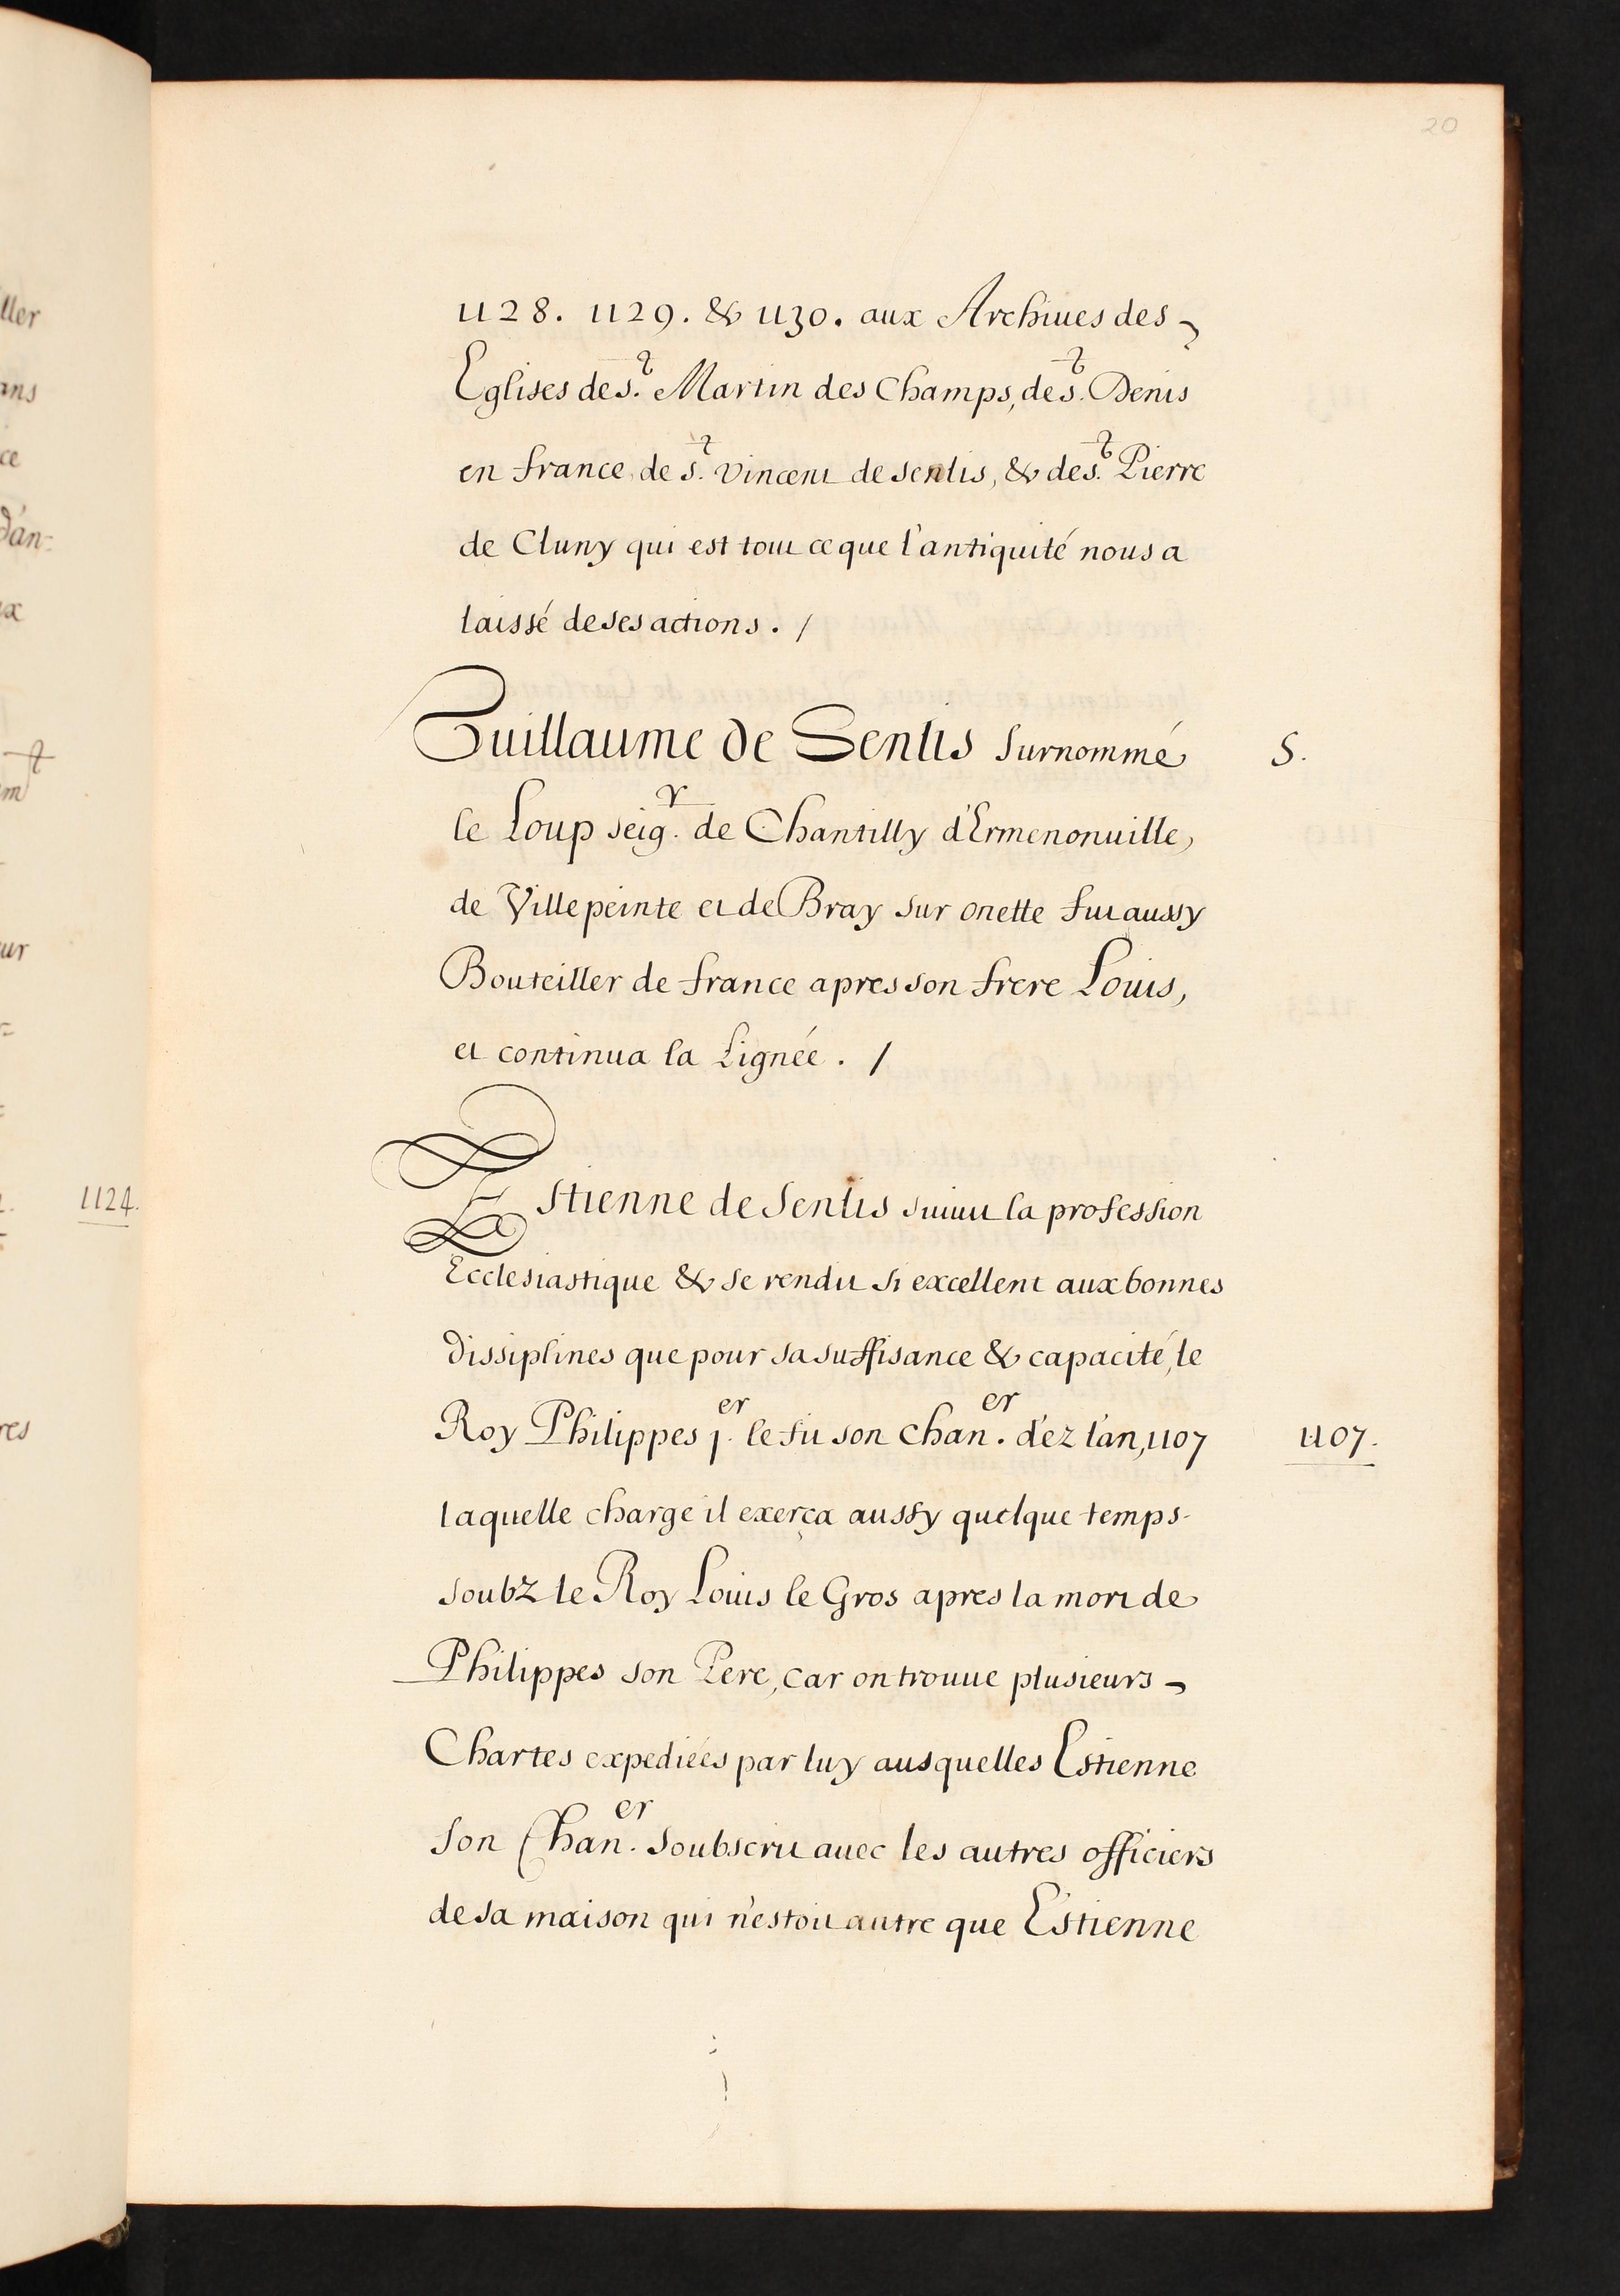 20
1128. 1129. & 1130. aux Archiues des
Eglises de S.t Martin des Champs, de S.t Denis
en france, de S.t Vincent de Senlis, & de S.t Pierre
de Cluny qui est tout ce que l'antiquité nous a
laissé de ses actions. /
Guillaume de Senlis Surnommé S.
le Loup seig.r de Chantilly d'Ermenonuille,
de Villepeinte et de Bray sur onette fut aussy
Bouteiller de france apres son frere Louis,
et continua la Lignée. /
Estienne de Senlis suiuit la profession
Ecclesiastique & se rendit si excellent aux bonnes
dissiplines que pour sa suffisance & capacité, le
Roy Philippes j.er le fit son chan.er d'ez l'an, 1107 1107.
laquelle charge il exerça aussy quelque temps
soubz le Roy Louis le Gros apres la mort de
Philippes son Pere, car on trouue plusieurs
Chartes expediées par luy ausquelles Estienne
son Chan.er soubscrit auec les autres officiers
de sa maison qui n'estoit autre que Estienne
ller
ans
ce
d'an=
ux
ur
1124.
res